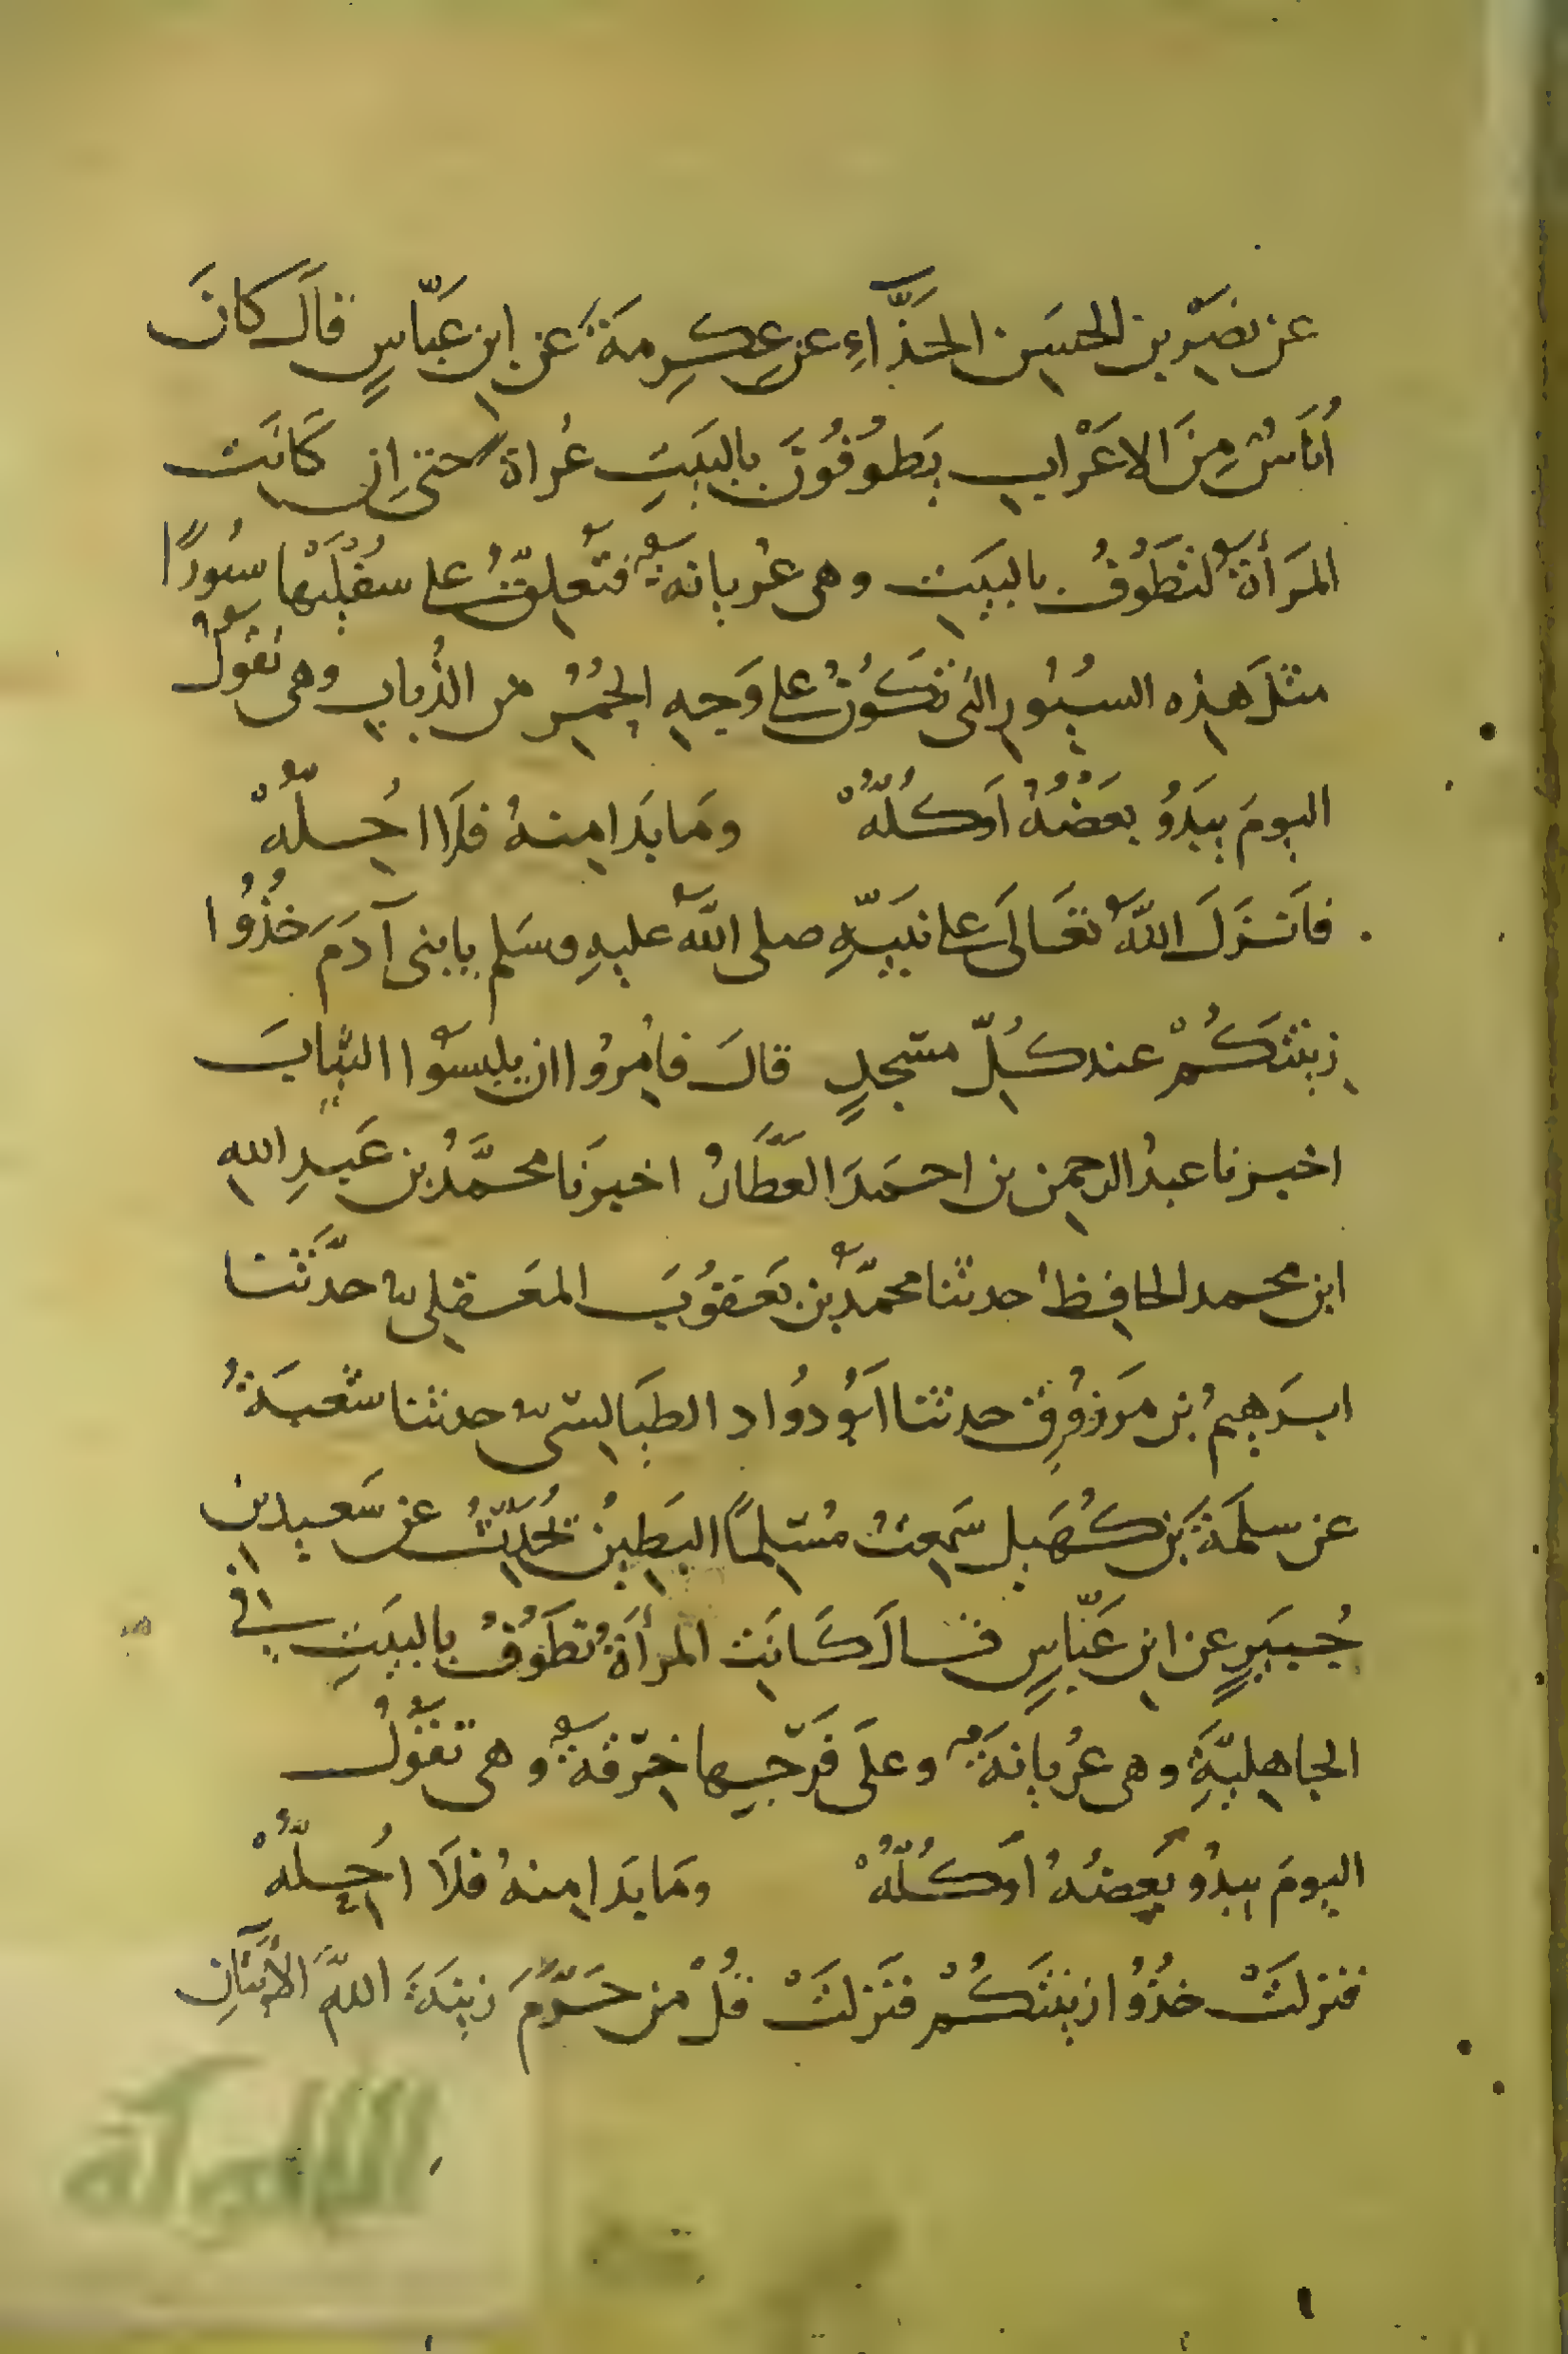 عن نصَيْر بن الحسَن الحَذَّاءِ عن عِكرِمَةَ عن ابن عَبّاسٍ قالَ كانَ
أُنَاسٌ مِنَ الاعَرْابِ يَطوُفُونَ بالبَيتِ عُراة حتى اِن كَانَت
المَرأةُ لتطَوُفُ بالبيَتِ وهى عُريانةٌ فتعلِقّ على سفُلَها سيُورًا
مثلَ هذِه السيُورِ التى تكَوُنُ على وَجهِ الحُمُرِ من الذُبابِ وهى تقوُلُ
اليومَ يبَدوُ بعَضُهُ اَو كُلُّهْ ومَا بدَا مِنهُ فلَا اُحِلّهُْ
فاَنزَلَ اللهُّ تعَالَى على نَبَيّهِ صلى اللهّ عليهِ وسَلم يا بنى آدَمَ خذُوُا
زِينتَكُمْ عند كُلِّ مسَجدٍ قالَ فامُرِوُا ان يلبِسوُا الثيابَ
اخبرنا عبدُ الرحمنِ بن احمَدَ العَطَّارُ اخبرَنا محمَّدُ بن عَبدِ اللهِ
ابن محمد الحافِظُ حدثنا محمدّ بن يَعقوُبَ المعَقِلى حدَّثَنا
ابرَهِيمُ بن مرَزوُقٍ حدثنا اَبُو دوُاد الطيَالِسى حدثنا شعبةَُ
عن سلمَةَ بن كُهَيل سَمِعتُ مُسَلِماً البَطِينُ يُحَدِّثُ عن سَعيِد بن
جُبيَرٍ عن ابن عَبّاسٍ قالَ كَانتِ المرأةُ تطَوُفُ بالبيتِ فى
الجاهِليّةِ وهى عرُيانَةٌ وعلَى فرَجِها خِرَقةٌ وهى تقوُلُ
اليومَ يبدوُ بَعضُهُ اَو كُلُّهْ ومَا بدَا مِنهُ فلَا اُحِلّهُْ
فنزلَتْ خذُوُا زينتَكُمْ فنَزلتْ قُلْ مَن حَرّمَ زينَةَ اللهَّ الآيَتَانِ